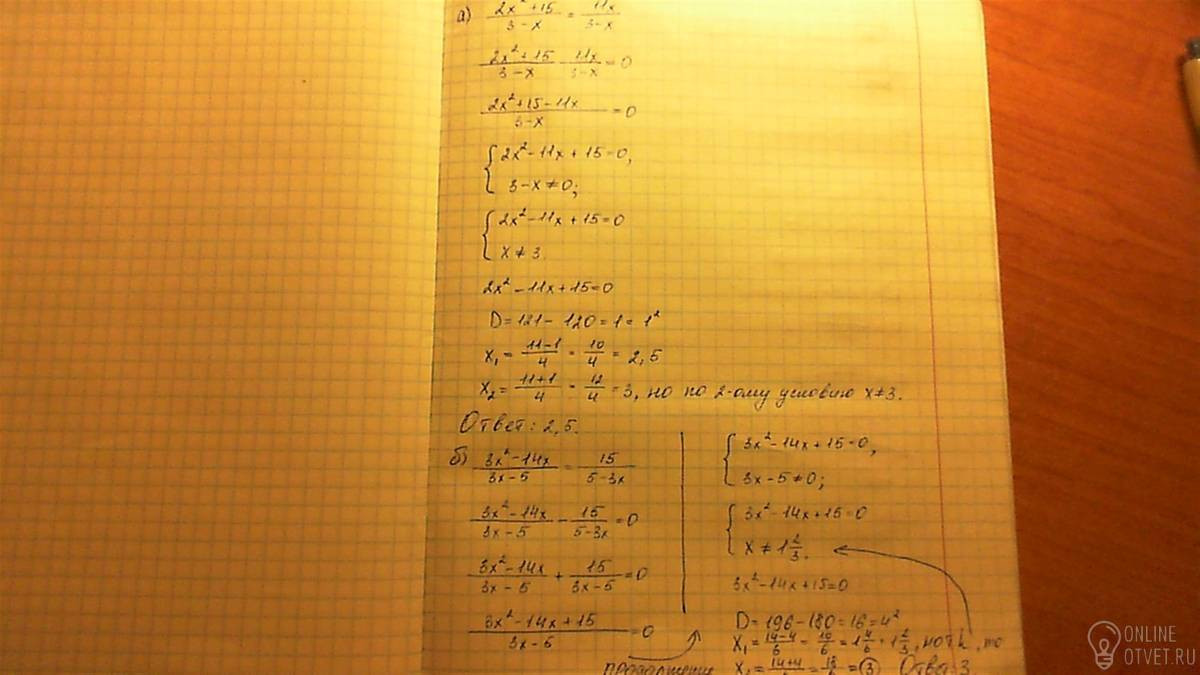 а) (2x² + 15)/(3 - x) = 11x/(3 - x)
(2x² + 15)/(3 - x) - 11x/(3 - x) = 0
(2x² + 15 - 11x)/(3 - x) = 0
{ 2x² - 11x + 15 = 0,
3 - x ≠ 0;
{ 2x² - 11x + 15 = 0
x ≠ 3.
2x² - 11x + 15 = 0
D = 121 - 120 = 1 = 1²
x₁ = (11-1)/4 = 10/4 = 2,5
x₂ = (11+1)/4 = 12/4 = 3, но по 2-ому условию x ≠ 3.
Ответ: 2,5.
б) (3x² - 14x)/(3x - 5) = 15/(5 - 3x)
(3x² - 14x)/(3x - 5) - 15/(5 - 3x) = 0
(3x² - 14x)/(3x - 5) + 15/(3x - 5) = 0
(3x² - 14x + 15)/(3x - 5) = 0
продолжение
{ 3x² - 14x + 15 = 0,
3x - 5 ≠ 0;
{ 3x² - 14x + 15 = 0
x ≠ 1 2/3.
3x² - 14x + 15 = 0
D = 196 - 180 = 16 = 4²
x₁ = (14-4)/6 = 10/6 = 1 4/6 = 1 2/3,
= 3 Ответ: 3.
ONLINE
OTVET.RU